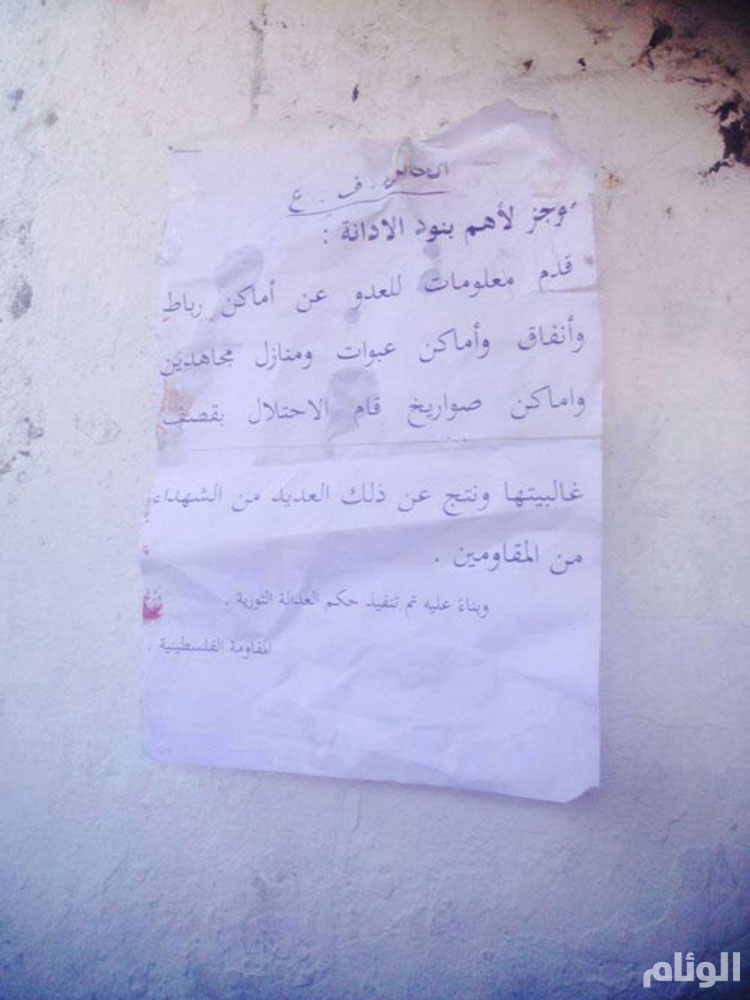 ف . ع
موجز لأهم بنود الادانة :
قدم معلومات للعدو عن أماكن رباط
وأنفاق وأماكن عبوات ومنازل مجاهدين
واماكن صواريخ قام الاحتلال بقصف
غالبيتها ونتج عن ذلك العديد من الشهداء
من المقاومين .
وبناءً عليه تم تنفيذ حكم العدالة الثورية .
المقاومة الفلسطينية .
الوئام